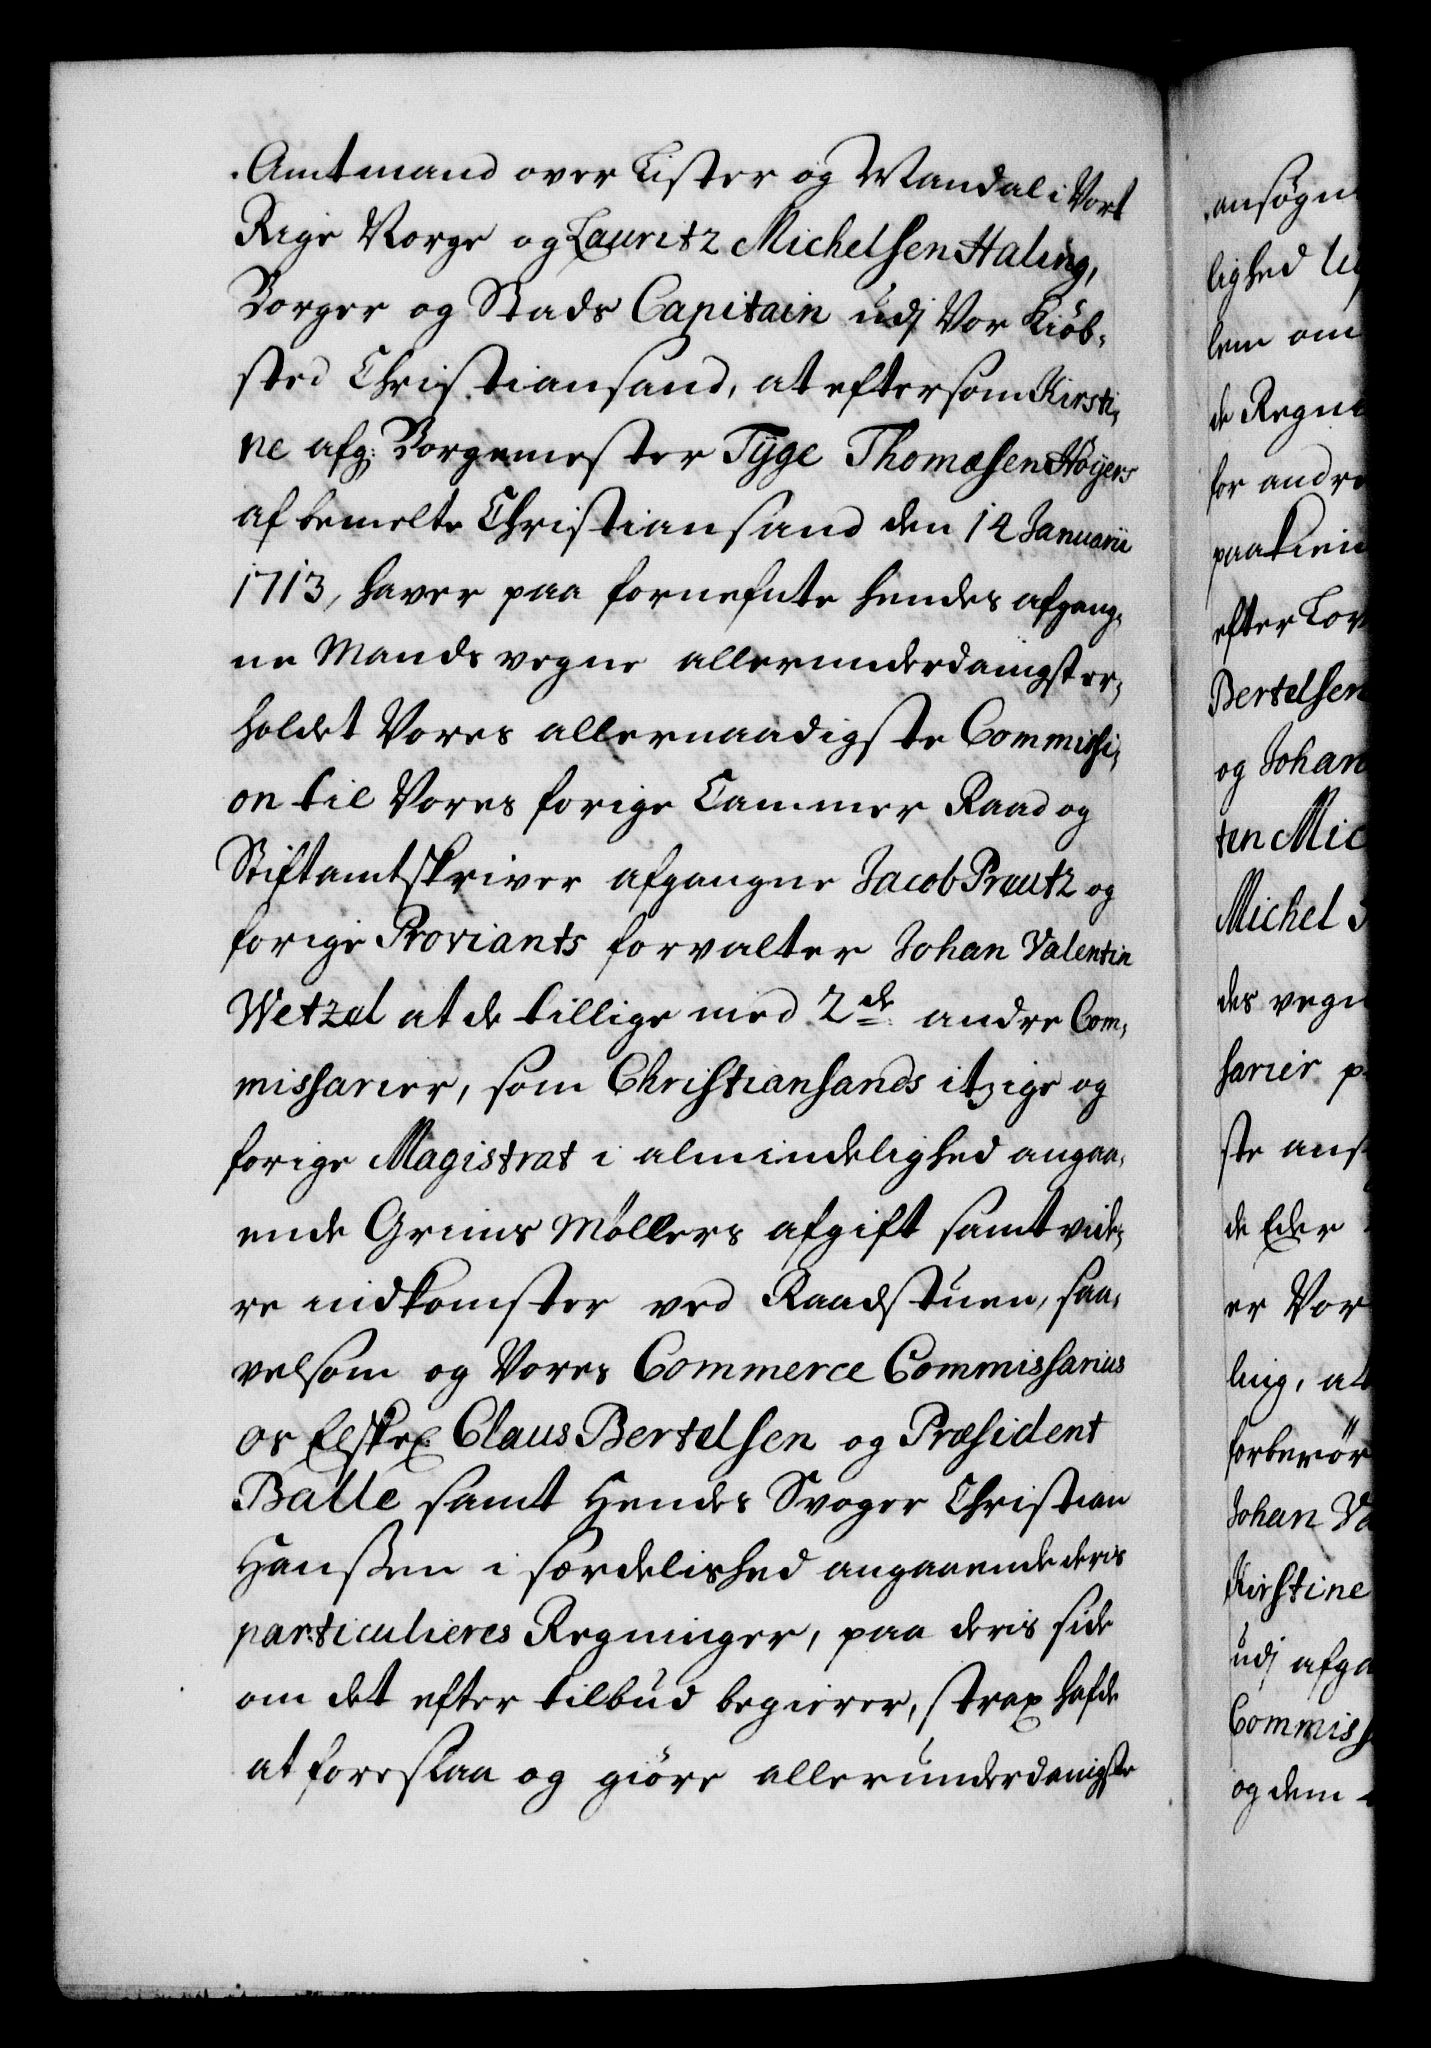 Amtmand over Lister og Mandal i Vort
Rige Norge og Lauritz Michelsen Haling,
Borger og Stads Capitain udj Vor Kiöb-
sted Christiansand, at eftersom Kirsti-
ne afg: Borgemester Tÿge Thomæsen Höyers
af bemelte Christiansand den 14 Januarii
1713, haver paa fornefnte hendes afgang-
ne Mands vegne allerunderdanigst er-
holdet Vores allernaadigste Commissi-
on til Vores forige Cammer Raad og
Stiftamtskriver afgangne Jacob Prautz og
forige Proviants forvalter Johan Valentin
Wetzel at de tillige med 2de andre Com-
missarier, som Christiansands itzige og
forige Magistrat i almindelighed angaa-
ende Grims Möllers afgift samt vide-
re indkomster ved Raadstuen, saa-
velsom og Vores Commerce Commissarius
os Elskel: Claus Bertelsen og Præsident
Balle samt Hendes Svoger Christian
Hanssen i særdelished angaaende deris
particulieres Regninger, paa deris side
om det efter tilbud begierer, strax hafde
at foreslaa og giöre allerunderdanigste
ansøgn
lighed
lem om
de Regni
for andre
paa
efter Lov
Bertelsen
og Johan
ten Mic
Michel
des vegn
sarier p
ste ans
de Eder
er Vor
ling, at
forberör
Johan Va
Kirstine
udj afga
Commiss
og dem